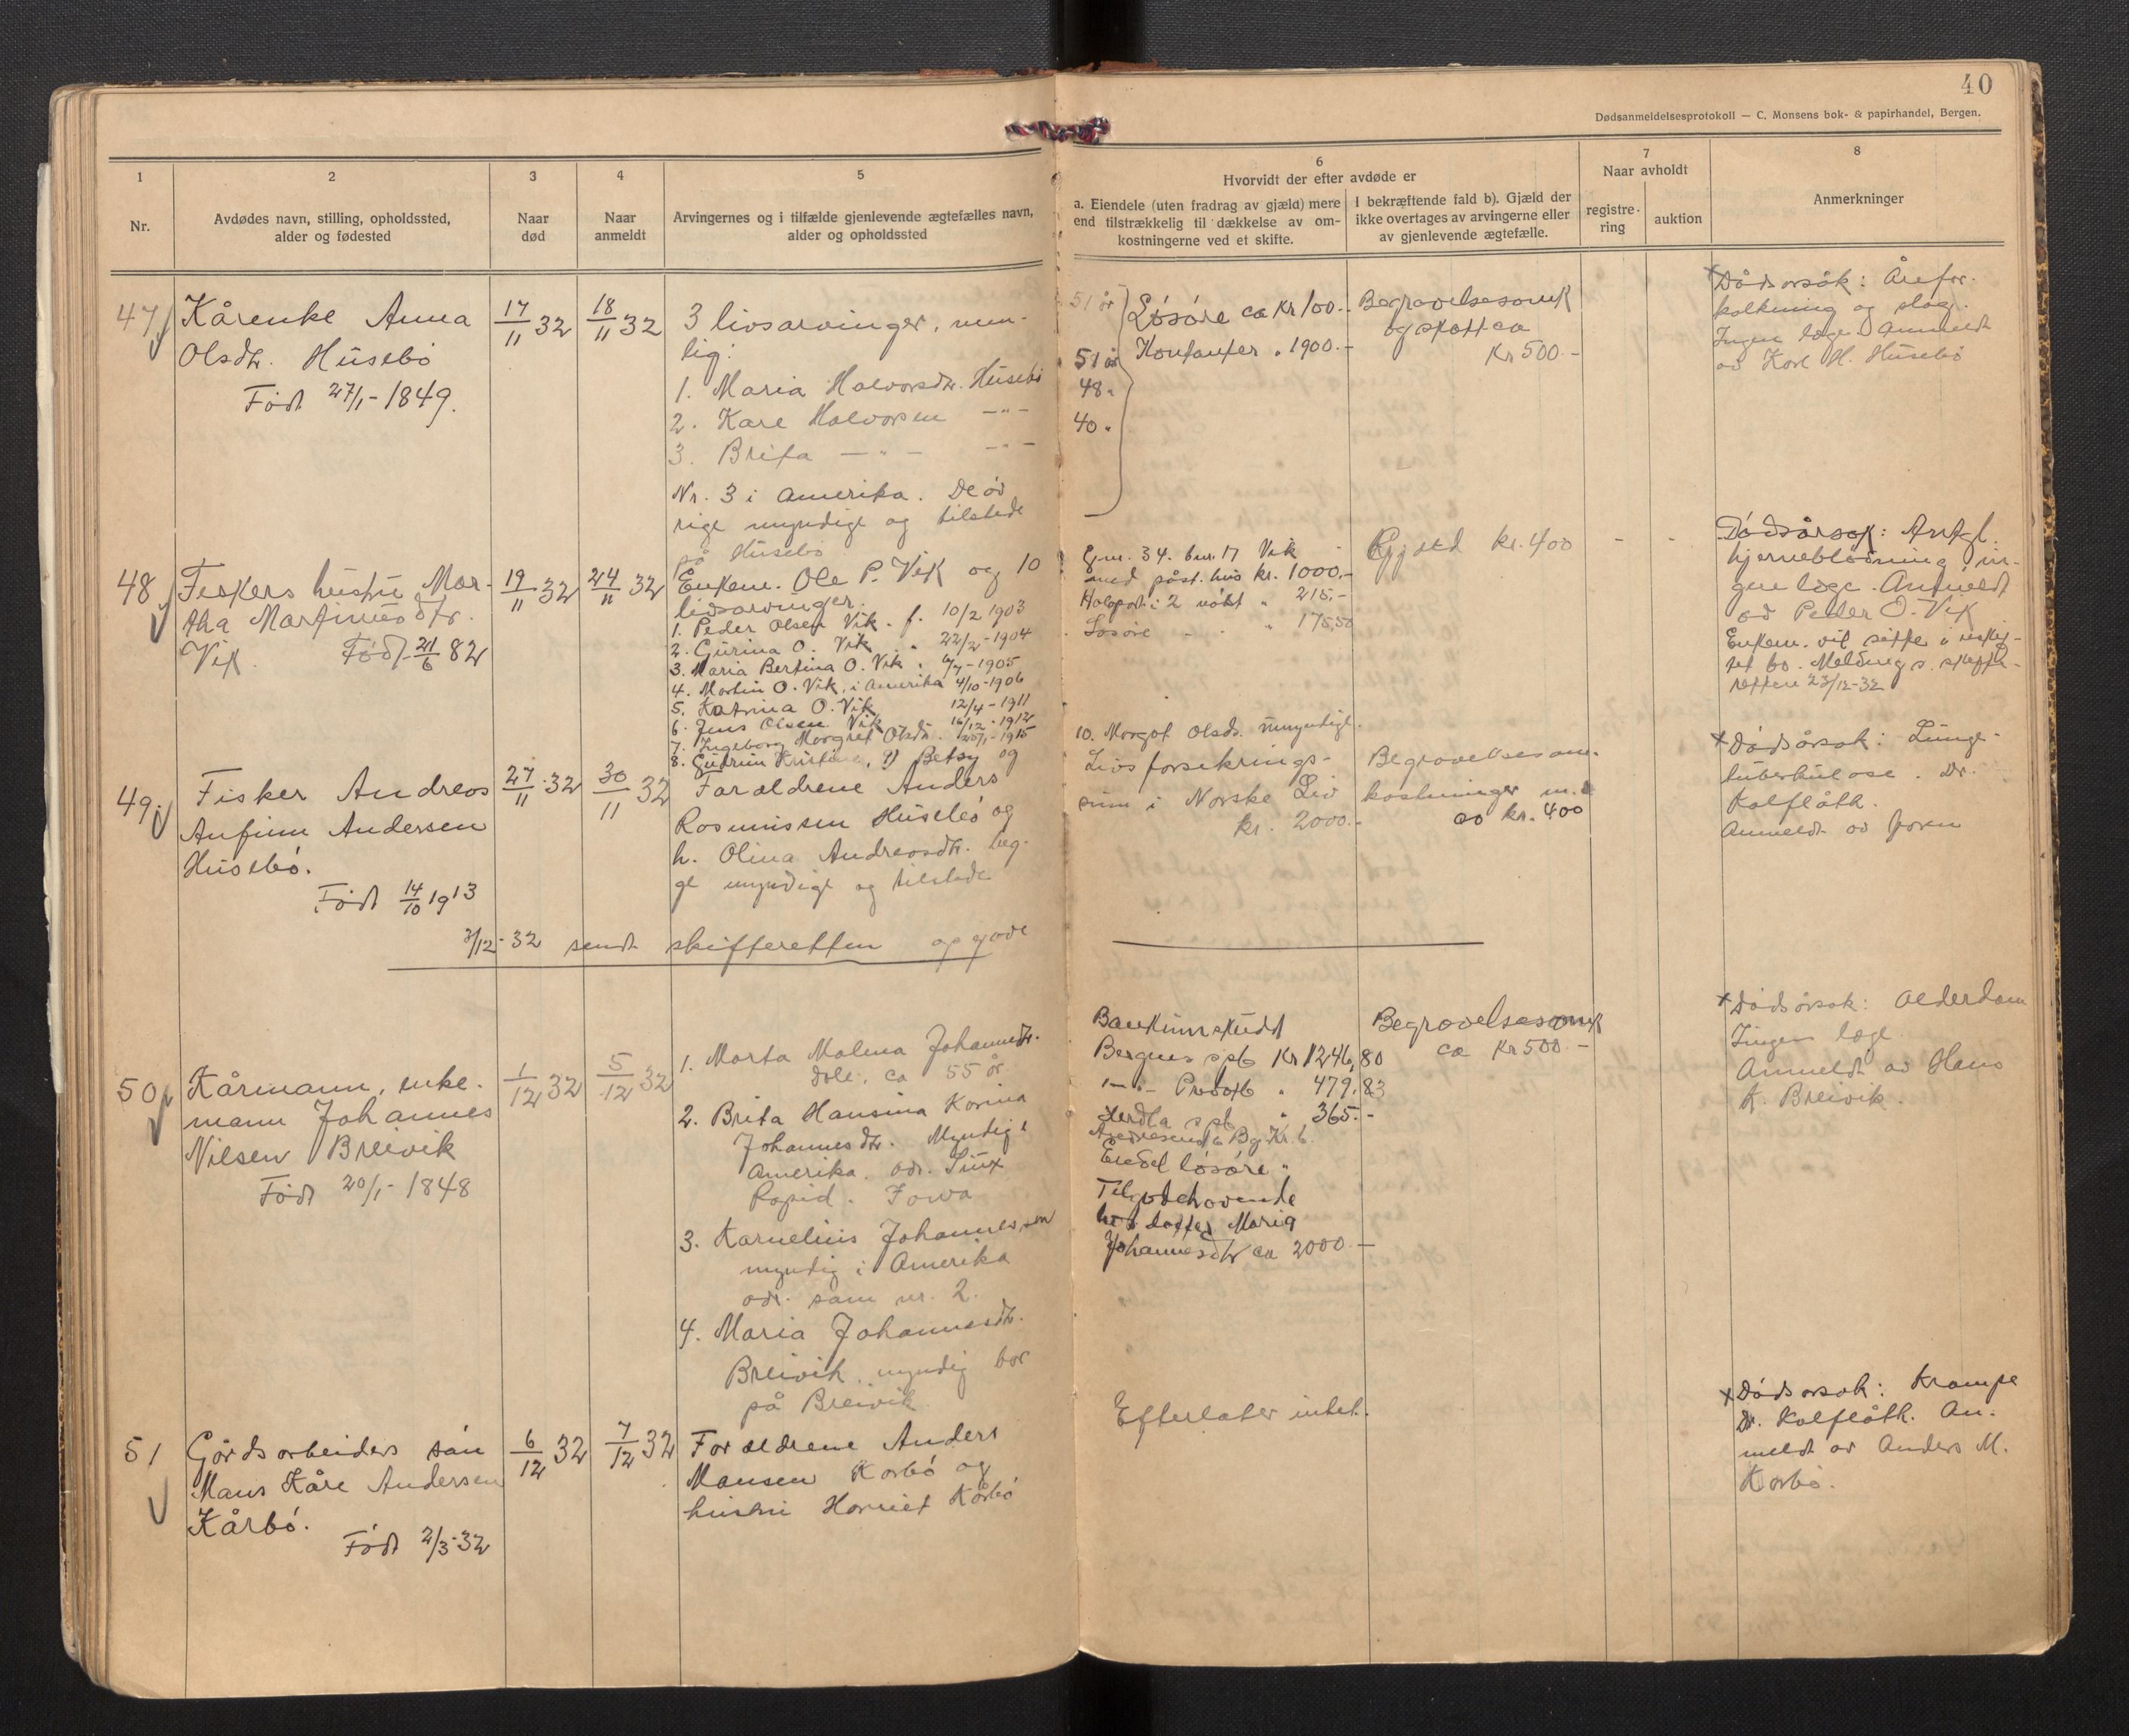 40
Dødsanmeldelsesprotokoll — C. Monsens bok- & papirhandel, Bergen.
1
Nr.
2
Avdødes navn, stilling, opholdssted,
alder og fødested
3
Naar
død
4
Naar
anmeldt
5
Arvingernes og i tilfælde gjenlevende ægtefælles navn,
alder og opholdssted
6
Hvorvidt der efter avdøde er
a. Eiendele (uten fradrag av gjæld) mere
end tilstrækkelig til dækkelse av om-
kostningerne ved et skifte.
I bekræftende fald b). Gjæld der
ikke overtages av arvingerne eller
av gjenlevende ægtefælle.
7
Naar avholdt
registre-
ring
auktion
8
Anmerkninger
47
Kårenke Anna
Olsdtr. Husebø
Født 27/1-1849.
17/11 32
18/11 32
3 livsarvinger, nem-
lig:
1. Maria Halvorsdtr. Husebø
2. Kare Halvorsen —"—
3. Brita —"— —"—
Nr. 3 i Amerika. De øv
rige myndige og tilstede
på Husebø
51 år
51 år
48 "
40 "
Løsøre ca kr 100.-
Kontanter " 1900.-
Begravelsesomk
og skatt ca
Kr 500.-
Dødsorsak: Årefor-
kalkning og slag.
Ingen læge. Anmeldt
av Karl H. Husebø
48
Fiskers hustru Mar-
tha Martinusdtr.
Vik. Født 21/6 82
19/11 32
24/11 32
Enkem. Ole P. Vik og 10
livsarvinger.
1. Peder Olsen Vik. f. 10/2 1903
2. Gurina O. Vik " 22/2-1904
3. Maria Bertina O. Vik " 6/7-1905
4. Martin O. Vik, i Amerika 4/10-1906
5. Katrina O. Vik 12/4-1911
6. Jens Olsen Vik 16/12-1912
7. Ingeborg Margret Olsd. 25/1-1915
8. Gudrun Kristine, 9) Betsy og
Gnr. 34. bnr. 17 Vik
med påst. hus kr. 1000.-
Halvpart i 2 nøst " 215.-
Løsøre " 175,50
10. Margot Olsd. umyndige.
kr. 400
Dødsårsak: Antgl.
hjerneblødning, in-
gen læge. Anmeldt
av Peder O. Vik
Enkem. vil sitte i uskif-
tet bo. Melding s. skifte-
retten 23/12-32
49
Fisker Andreas
Anfinn Andersen
Husebø.
Født 14/10 1913
27/11 32
30/11 32
Forældrene Anders
Rasmussen Husebø og
h. Olina Andreasdtr. beg-
ge myndige og tilstede
3/12-32 sendt skifteretten opgave
Livsforsikrings-
sum i Norske Liv
kr. 2000.-
Begravelsesom-
kostninger m.
ca kr. 400
Dødsårsak: Lunge-
tuberkulose. Dr.
Kalflåth.
Anmeldt av faren
50
Kårmann, enke-
mann Johannes
Nilsen Breivik
Født 20/1-1848
1/12 32
5/12 32
1. Marta Malena Johannesdtr.
Dale, ca 55 år
2. Brita Hansina Karina
Johannesdtr. Myndig i
Amerika. adr. Siux
Rapid. Jowa
3. Karnelius Johannessen
myndig i Amerika
adr. som nr. 2.
4. Maria Johannesdtr.
Breivik. myndig bor
på Breivik.
Bankinnskudd
Bergens spb Kr 1246,80
—"— Privatb " 479,83
Herdla spb " 365.-
Andresens & Bg Kr. b.
Endel løsøre "
Tilgodehavende
hos datter Maria
Johannesdtr ca 2000.-
Begravelsesomk
ca Kr 500.-
Dødsårsak: Alderdom
Ingen læge.
Anmeldt av Hans
K. Breivik.
51
Gårdsarbeiders søn
Mans Kåre Andersen
Kårbø.
Født 2/3-32
6/12 32
7/12 32
Forældrene Anders
Mansen Korbø og
hustru Harriet Kårbø
Efterlater intet.
Dødsorsak: Krampe
Dr. Kalflåth. An-
meldt av Anders M.
Korbø.